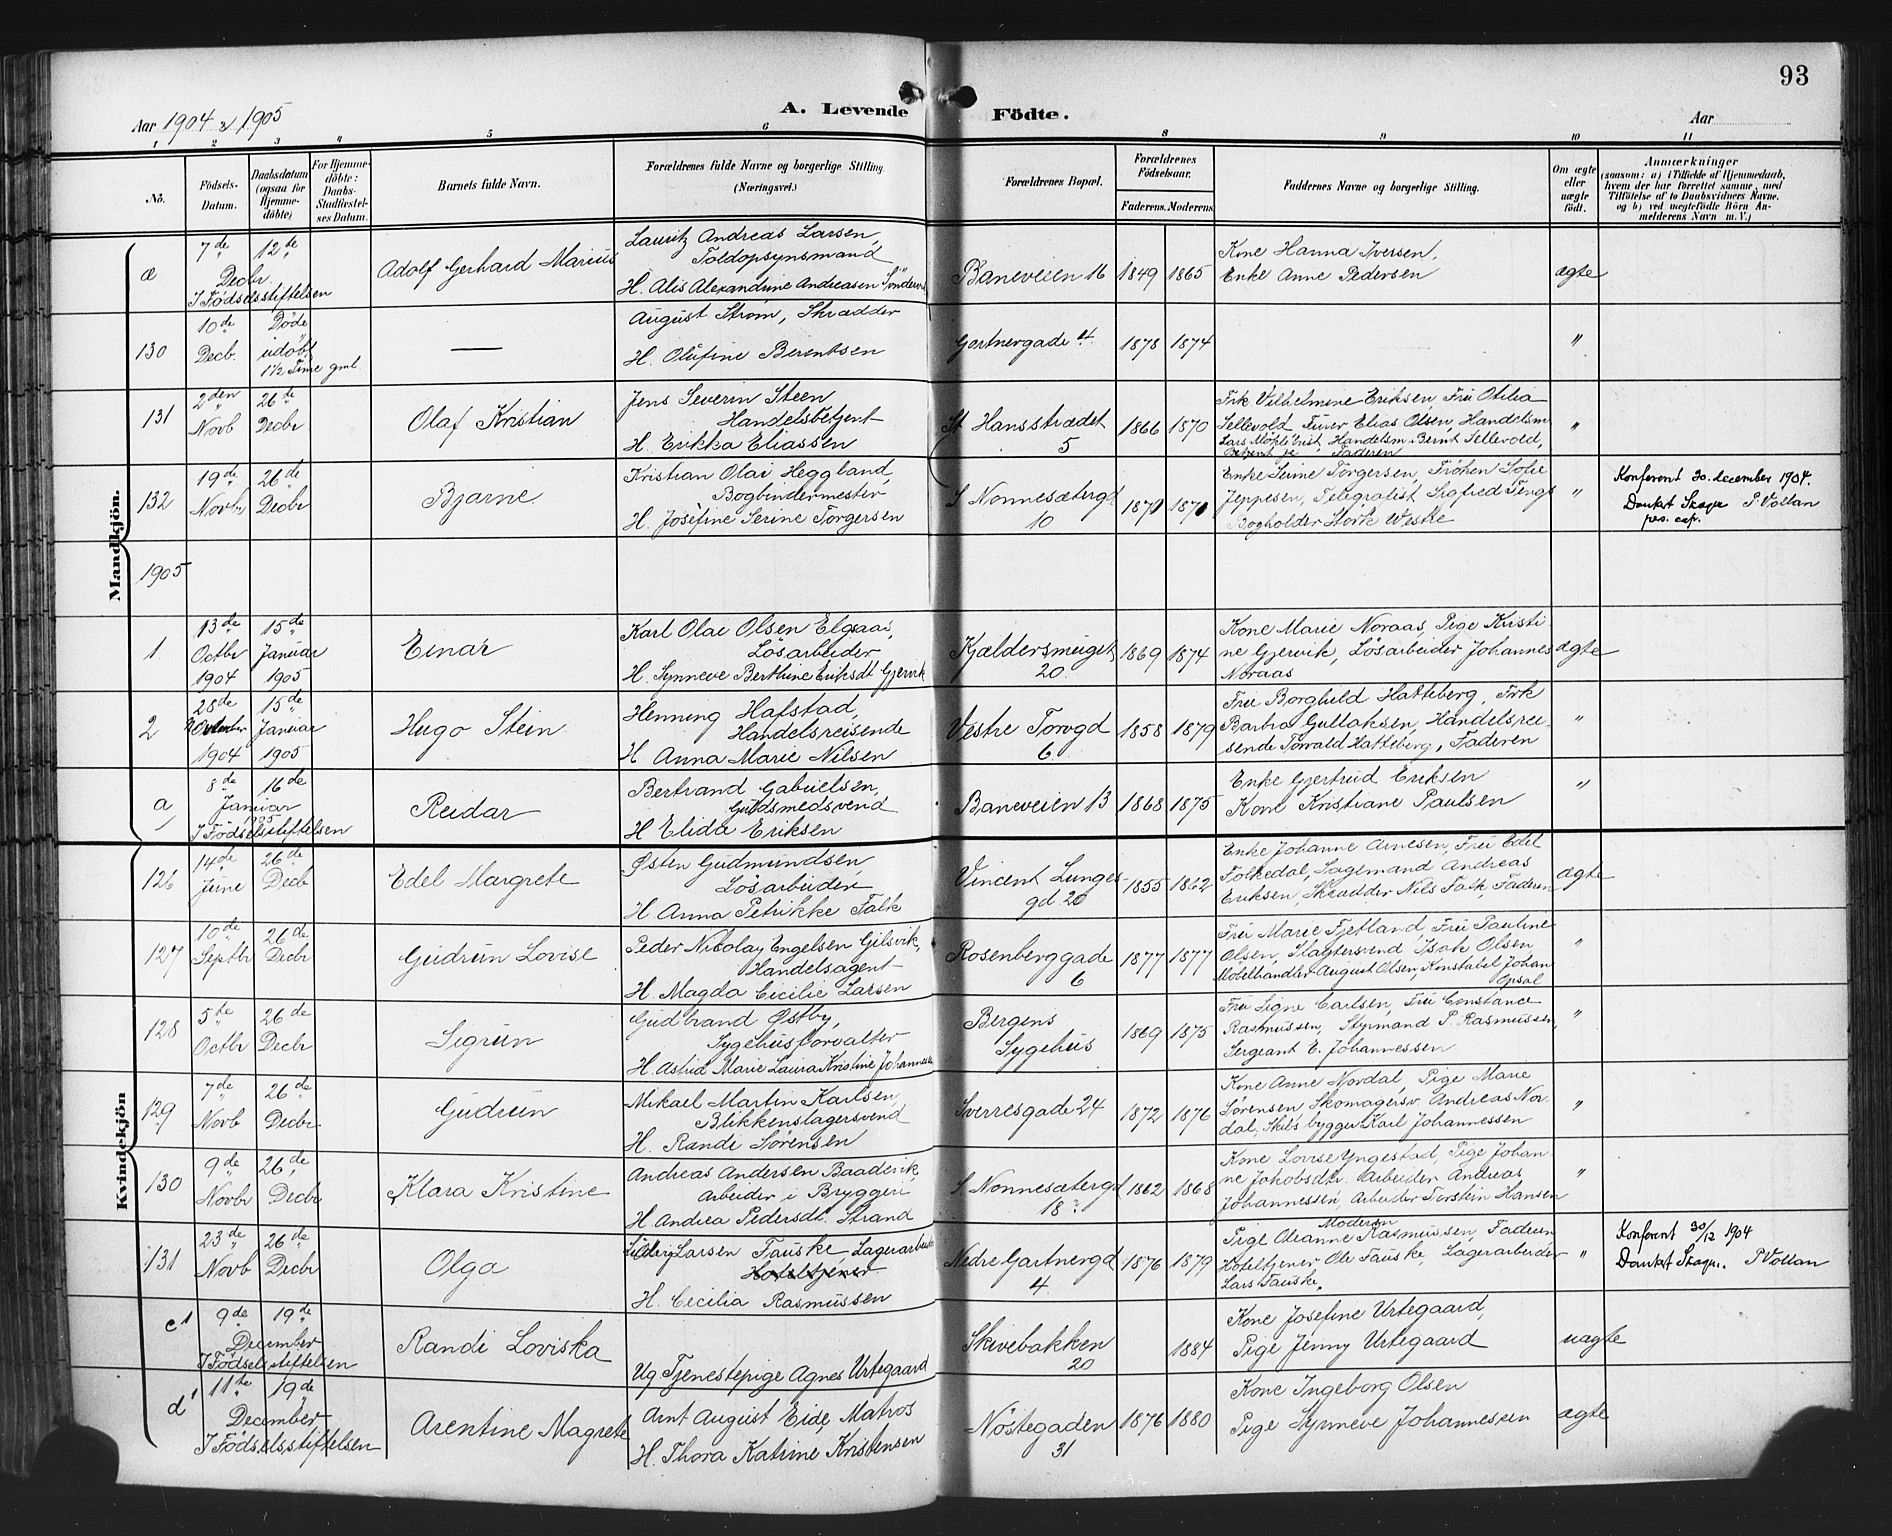 93
Aar 1904 & 1905
A. Levende Födte.
Aar
1 2 3 4 5 6 8 9 10 11
No.
Födsels-Datum.
Daabsdatum (ogsaa for Hjemmedöbte)
For Hjemmedöbte: Daabs-Stadfæstelses Datum.
Barnets fulde Navn.
Forældrenes fulde Navne og borgerlige Stilling (Næringsvei.)
Forældrenes Bopæl.
Forældrenes Födselsaar.
Faderens. Moderens.
Faddernes Navne og borgerlige Stilling.
Om ægte eller uægte födt.
Anmærkninger
(saasom: a) i Tilfælde af Hjemmedaab, hvem der har forrettet samme, med Tilföielse af to Daabsvidners Navne, og b) ved uægtefödte Börn Anmelderens Navn m. V.)
Mandkjön.
æ
7de 12de
Decbr.
I Fødselsstiftelsen
Adolf Gerhard Marius
Lauritz Andreas Larsen,
Toldopsynsmand
H. Alis Alexandrine Andreasen
Baneveien 16
1849 1865
Kone Hanna Iversen,
Enke Anne Pedersen
ægte
130
10de Decbr.
Døde udøbt
1½ Time gml.
—
August Strøm, Skrædder
H. Olufine Berentsen
Gartnergade 4
1878 1874
"
131
2den Novb
26de Decbr
Olaf Kristian
Jens Severin Steen
Handelsbetjent
H. Erikka Eliassen
St Hansstrædet
5
1866 1870
Frk Vilhelmine Eriksen, Fru Otilia
Sellevold, Elias Olsen, Handelsm
Handelsm. Bernt Sellevold,
Faderen
"
132
19de Novbr
26de Decbr
Bjarne
Kristian Olai Heggland,
Bogbindermester
H. Josefine Serine Torgersen
S Nonnesætergd
10
1870 1870
Enke Serine Torgersen, Frøken Sofie
Jeppesen, Telegrafist Sigfred
Bogholder Stork Westke
"
Konferert 30. december 1904.
Dankert Skagen P. Vollan
pers. cap.
1905
1
13de Octbr 1904
15de Januar 1905
Einar
Karl Olai Olsen Elgsaas,
Løsarbeider
H. Synneve Berthine Eriksdt Gjervik
Kjældersmuget
20
1869 1874
Kone Marie Noraas, Pige Kristi
ne Gjervik, Løsarbeider Johannes
Noraas
ægte
2
28de 1904
15de Januar 1905
Hugo Stein
Henning Hafstad,
Handelsreisende
H Anna Marie Nilsen
Vestre Torvgd
6
1858 1879
Fru Borghild Hatteberg, Frk
Barbra Gullaksen, Handelsrei
sende Torvald Hatteberg, Faderen
"
a
8de 16de
Januar
1905
I Fødselsstiftelsen
Reidar
Bertrand Gabrielsen,
Guldsmedsvend
H Elida Eriksen
Baneveien 13
1868 1875
Enke Gjertrud Eriksen
Kone Kristiane Paulsen
"
Kvindekjön
126
14de June
26de Decb
Edel Margrete
Østen Gudmundsen,
Løsarbeider
H Anna Petrikke Falk
Vincent Lunges
gd 20
1855 1862
Enke Johanne Arnesen, Fru Edel
Folkedal, Sagemand Andreas
Eriksen, Skrædder Nils Falk, Faderen
ægte
127
10de Septbr
26de Decbr
Gudrun Lovise
Peder Nikolay Engelsen Gilsvik,
Handelsagent
H. Magda Cicilie Larsen
Rosenberggade
6
1877 1877
Fru Marie Fjetland, Fru Pauline
Olsen, Slagtersvend Isak Olsen
Møbelhandler August Olsen, Konstabel Johan
Opsal
"
128
5te Octbr
26de Decbr
Sigrun
Gudbrand Østby,
Sygehusforvalter
H. Astrid Marie Laura Kristine Johannesen
Bergens
Sygehus
1869 1875
Fru Signe Carlsen, Fru Constance
Rasmussen, Styrmand P. Rasmussen,
Sergeant E. Johannessen
"
129
7de Novb
26de Decbr
Gudrun
Mikael Martin Karlsen,
Blikkenslagersvend
H. Randi Sørensen
Sverresgade 24
1872 1876
Kone Anne Nordal, Pige Marie
Sørensen, Skomagersv. Andreas Nor-
dal, Skibsbygger Karl Johannessen
"
130
9de Novbr
26de Decbr
Klara Kristine
Andreas Andersen Baadsvik,
Arbeider i Bryggeri
H Andrea Pedersdt. Strand
S Nonnesætergd
18
1862 1868
Kone Lovise Yngestad, Pige Johan
ne Jakobsdtr. Arbeider Andreas
Johannessen, Arbeider Torstein Hansen
"
131
23de Novb
26de Decbr
Olga
Larsen Fauske, Lagerarbeider
Hoteltjener
H. Cecilia Rasmussen
Nedre Gartnergd
4
1876 1879
Moderen
Pige Oleanne Rasmussen, Faderen
Hoteltjener Ole Fauske, Lagerarbeider
Lars Fauske,
"
Konferert 30/12 1904
Dankert Skagen. P Vollan
c¹
9de 19de
December
I Fødselsstiftelsen
Randi Loviska
Ug Tjenestepige Agnes Urtegaard
Skivebakken
20
1884
Kone Josefine Urtegaard,
Pige Jenny Urtegaard
uægte
d¹
11te 19de
December
I Fødselsstiftelsen
Arentine Magrete
Arnt August Eide, Matros
H. Thora Katrine Kristensen
Nøstegaden
31
1876 1880
Kone Ingeborg Olsen
Pige Synneve Johannessen
ægte